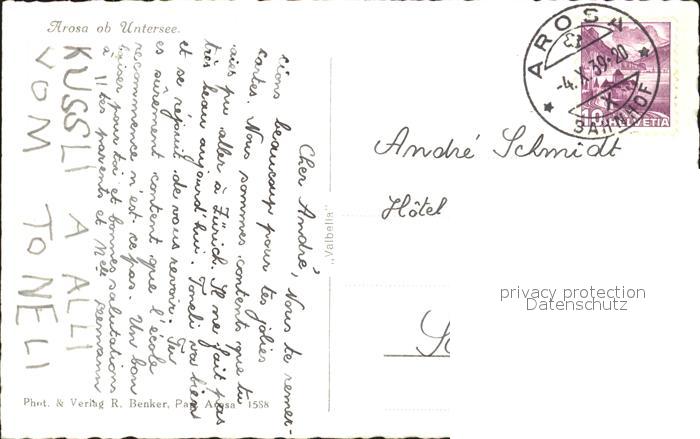 Arosa ob Untersee.
Cher André, Nous te remer-
cions beaucoup pour tes jolies
cartes. Nous sommes contents que tu
aies pu aller à Zürich. Il ne fait pas
très beau aujourd'hui. Toneli va bien
et se réjouit de vous revoir. Tu
es sûrement content que l'école
recommence n'est-ce pas. Un bon
baiser pour toi et bonnes salutations
à tes parents et Mlle
KUSSLI A ALLI
VOM TONELI
Phot. & Verlag R. Benker, Arosa 1588
„Valbella"
AROSA
-4.X.39.20
X
BAHNHOF
10 HELVETIA
André Schmidt
Hôtel
privacy protection
Datenschutz